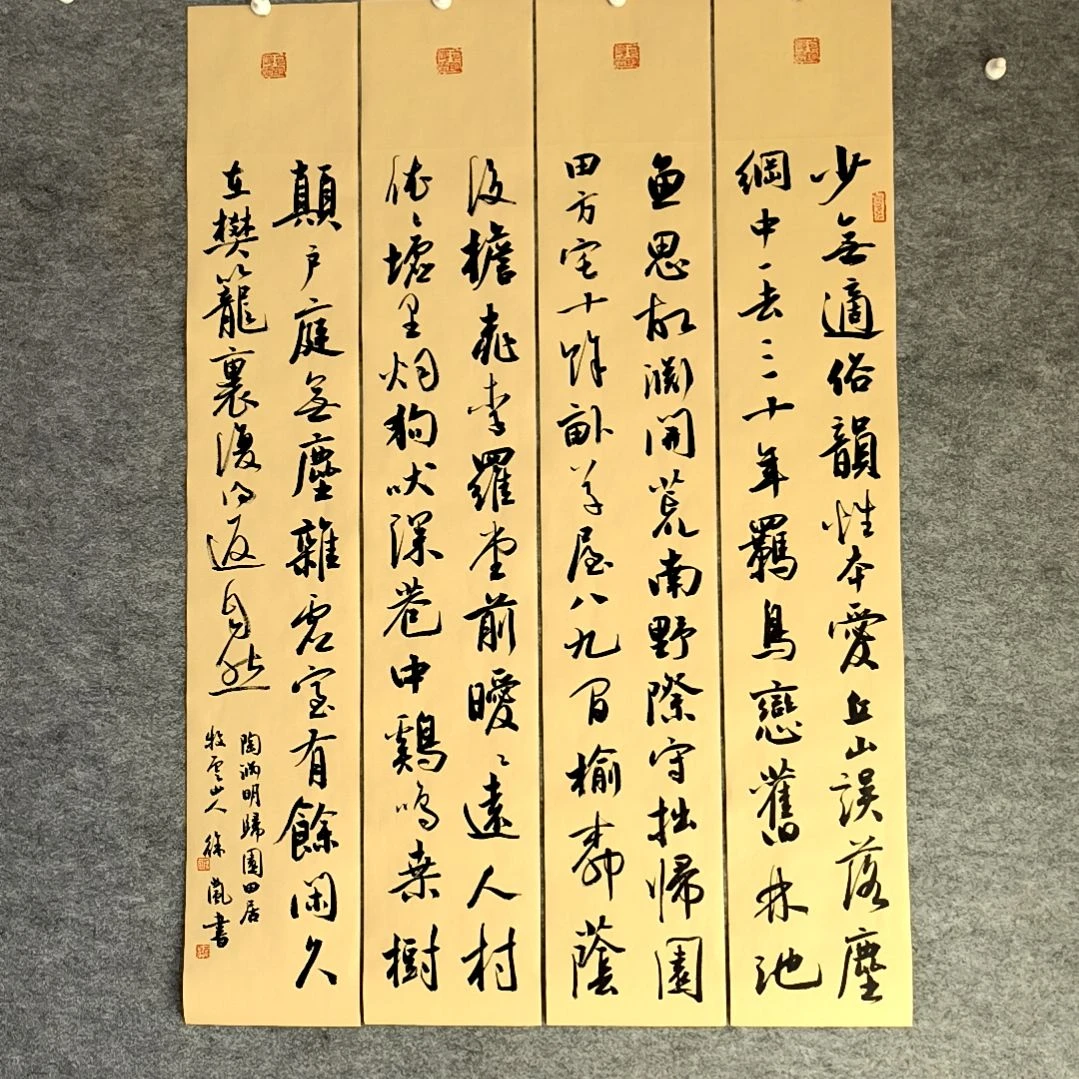 少無適俗韻性本愛丘山誤落塵
網中一去三十年羈鳥戀舊林池
魚思故淵開荒南野際守拙歸園
田方宅十餘畝草屋八九間榆柳蔭
後檐桃李羅堂前曖〻遠人村
依〻墟里烟狗吠深巷中鷄鳴桑樹
顛戶庭無塵雜虛室有餘閑久
在樊籠裏復得返自然
陶淵明歸園田居
牧雲山人徐嵐書